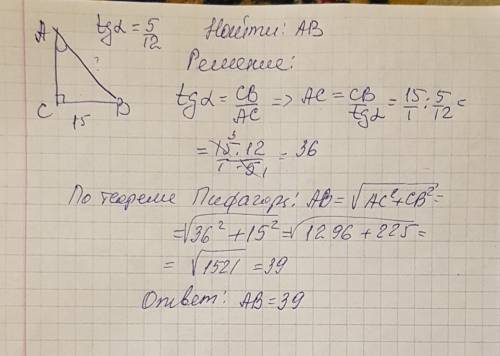 A tgα = 5/12 Найти: AB
?
Решение:
C 15 B
tgα = CB/AC => AC = CB/tgα = 15/1 : 5/12 =
= 15 · 12 / 1 · 5 = 36
3 1
По теореме Пифагора: AB = √AC²+CB² =
= √36² + 15² = √1296 + 225 =
= √1521 = 39
Ответ: AB = 39